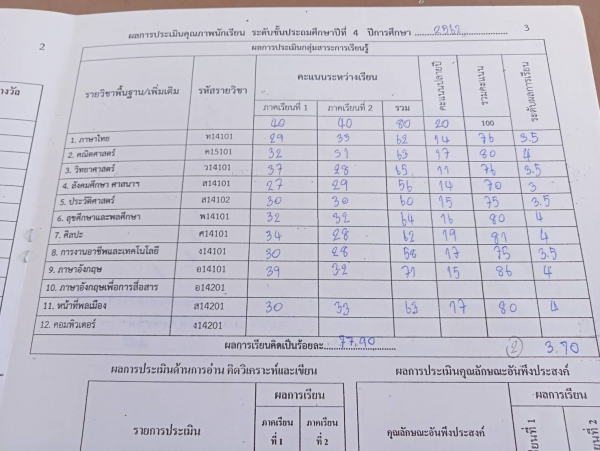 2
ผลการประเมินคุณภาพนักเรียน ระดับชั้นประถมศึกษาปีที่ 4 ปีการศึกษา 2562
3
ผลการประเมินกลุ่มสาระการเรียนรู้
รายวิชาพื้นฐาน/เพิ่มเติม รหัสรายวิชา คะแนนระหว่างเรียน คะแนนปลายปี รวมคะแนน ระดับผลการเรียน
ภาคเรียนที่ 1 ภาคเรียนที่ 2 รวม
40 40 80 20 100
1. ภาษาไทย ท14101 29 33 62 14 76 3.5
2. คณิตศาสตร์ ค15101 32 31 63 17 80 4
3. วิทยาศาสตร์ ว14101 37 28 65 11 76 3.5
4. สังคมศึกษา ศาสนาฯ ส14101 27 29 56 14 70 3
5. ประวัติศาสตร์ ส14102 30 30 60 15 75 3.5
6. สุขศึกษาและพลศึกษา พ14101 32 32 64 16 80 4
7. ศิลปะ ศ14101 34 28 62 19 81 4
8. การงานอาชีพและเทคโนโลยี ง14101 30 28 58 17 75 3.5
9. ภาษาอังกฤษ อ14101 39 32 71 15 86 4
10. ภาษาอังกฤษเพื่อการสื่อสาร อ14201
11. หน้าที่พลเมือง ส14201 30 33 63 17 80 4
12. คอมพิวเตอร์ ง14201
ผลการเรียนคิดเป็นร้อยละ 77.90 2 3.70
ผลการประเมินด้านการอ่าน คิดวิเคราะห์และเขียน
รายการประเมิน ผลการเรียน
ภาคเรียนที่ 1 ภาคเรียนที่ 2
ผลการประเมินคุณลักษณะอันพึงประสงค์
คุณลักษณะอันพึงประสงค์ ผลการเรียน